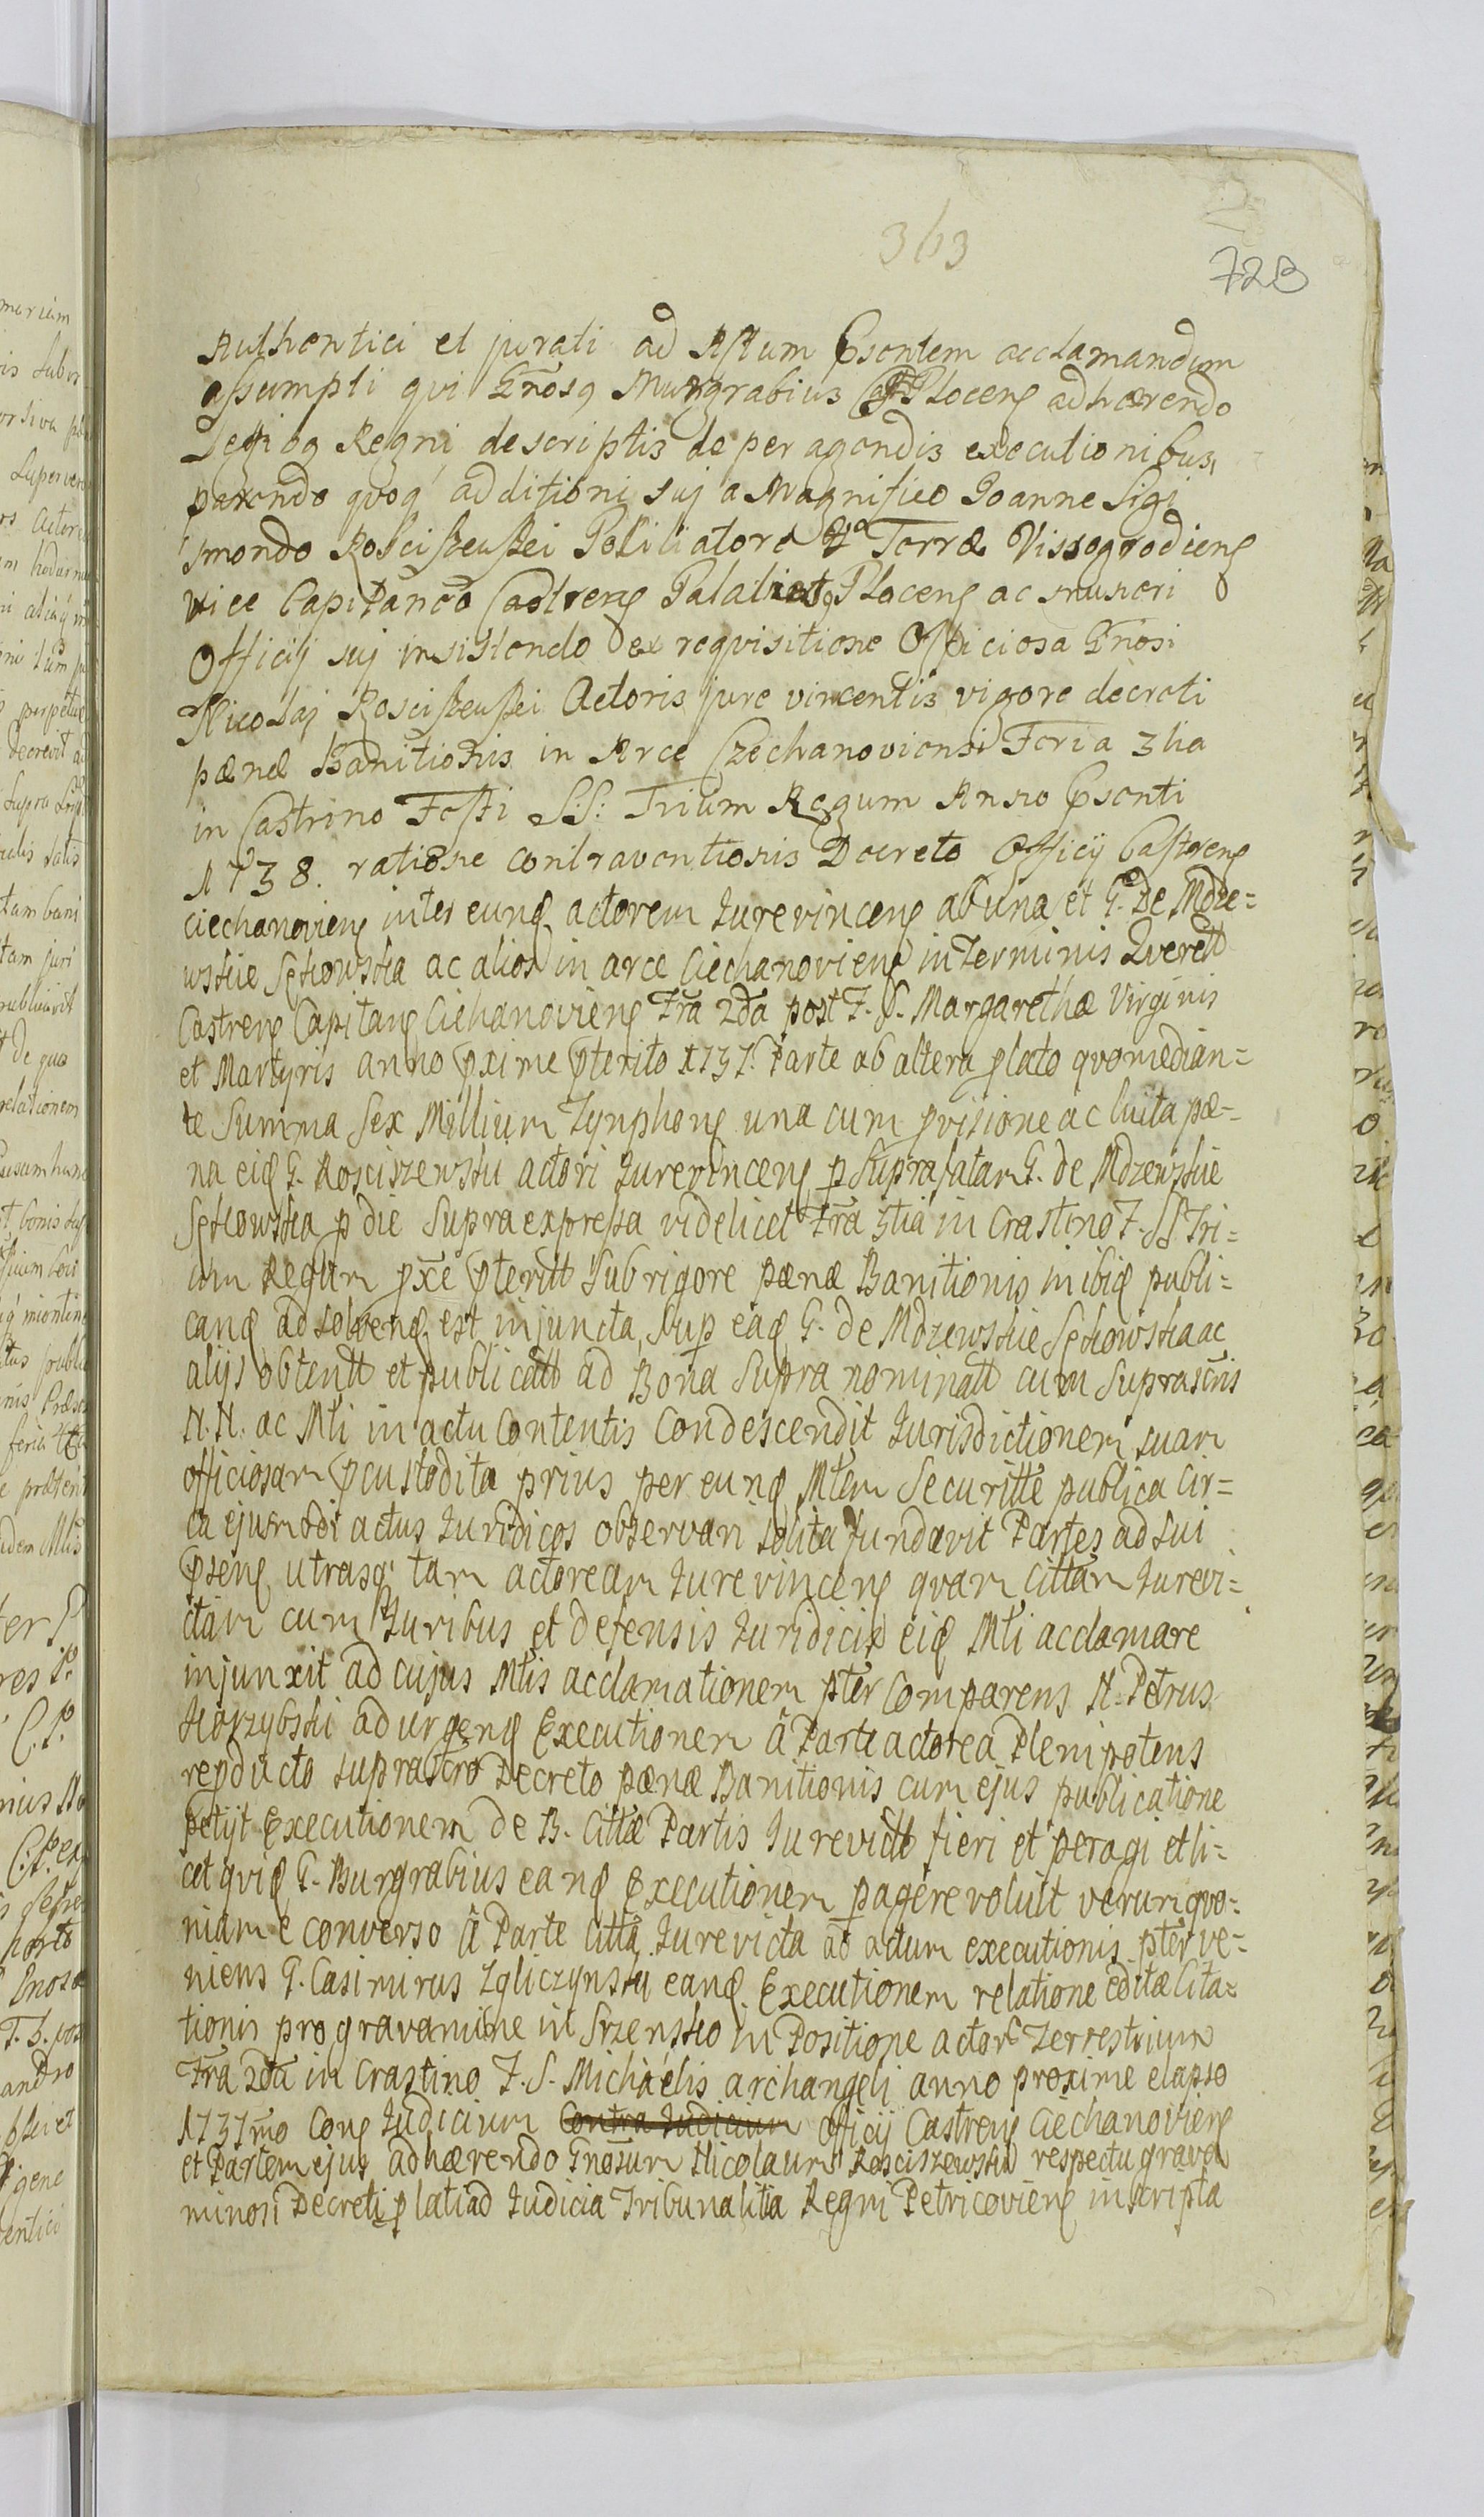 363
728
Authentici et jurati ad Actum Pṡentem acclamandum
assumpti qui Gnosq Murgrabius Plocens adhærendo
Legi og Regni descriptis de per agendis executionibus
parendo quoq additioni suj a Magnifico Joanne Sigi
smondo Rosciszewski Terræ Vissogrodiens
vice Capitaneo Castrens Palatinatq Plocens ac muneri
Officij suj insistendo ex requisitione Officiosa Gnosi
Nicolaj Rosciszewski Actoris jure vincentis vigore decreti
pænæ Banitionis in Arce Czechanoviensi Feria 3tia
in Castrino Festi SS: Trium Regum Anno Pṡenti
1738. ratione contraventionis Decreto Officij Castrens
Ciechanoviens inter eund actorem Jurevincens ab una et G. De Mdze=
wskie Sękowska ac alios in arce Ciechanoviens in Terminis Querell
Castrens Capitans Ciehanoviens Fra 2da post F. S. Margarethæ Virginis
et Martyris anno pxime pterito 1737. Parte ab altera plato quo median=
te Summa Sex Millium Tynphons una cum pvisione ac luita pæ=
na eid G. Rosciszewski actori Jurevincens p Suprafatam G. de Mdzewskie
Sękowska p die Supra expressa videlicet Fra 3tia in Crastino F. SS. Tri=
um Regum pxe pteritt Sub rigore pænæ Banitionis inibid publi=
cand ad solvend est injuncta Sup ead G. de Mdzewskie Sękowska ac
alijs obtentt et publicatt ad Bona Supra nominatt cum Suprascris
N. N. ac Mti in actu Contentis Condescendit Jurisdictionem suam
officiosam pcustodita prius per eund Mtem Securitte publica Cir=
ca ejusmodi actus Juridicos observari solita fundavit Partes ad sui
psens utrasq tam actoream Jurevincens quam Cittam Jurevi=
ctam cum Juribus et defensis Juridicis eid Mti acclamare
injunxit ad cujus Mtis acclamationem pter Comparens N. Petrus
Skorzybski ad urgend Executionem â Parte actorea Plenipotens
repducto suprascro Decreto pænæ Banitionis cum ejus publicatione
petijt Executionem de B. Cittæ Partis Jurevictt fieri et peragi et li=
cet quid G. Burgrabius eand Executionem pagere voluit verum quo=
niam e converso â Parte Citta Jurevicta ad actum executionis pter ve=
niens G. Casimirus Zgliczynski eand Executionem relatione editæ Cita=
tionis pro gravamine in Srzensko in Positione actor Terrestrium
Fra 2da in Crastino F. S. Michaelis archangeli anno proxime elapso
1737mo Cons Judicium Contra Judicium Officij Castrens Ciechanoviens
et Partem ejus adhærendo Gnosum Nicolaum Rosciszewski respectu grava
minosi Decreti plati ad Judicia Tribunalitia Regni Petricoviens inscripta